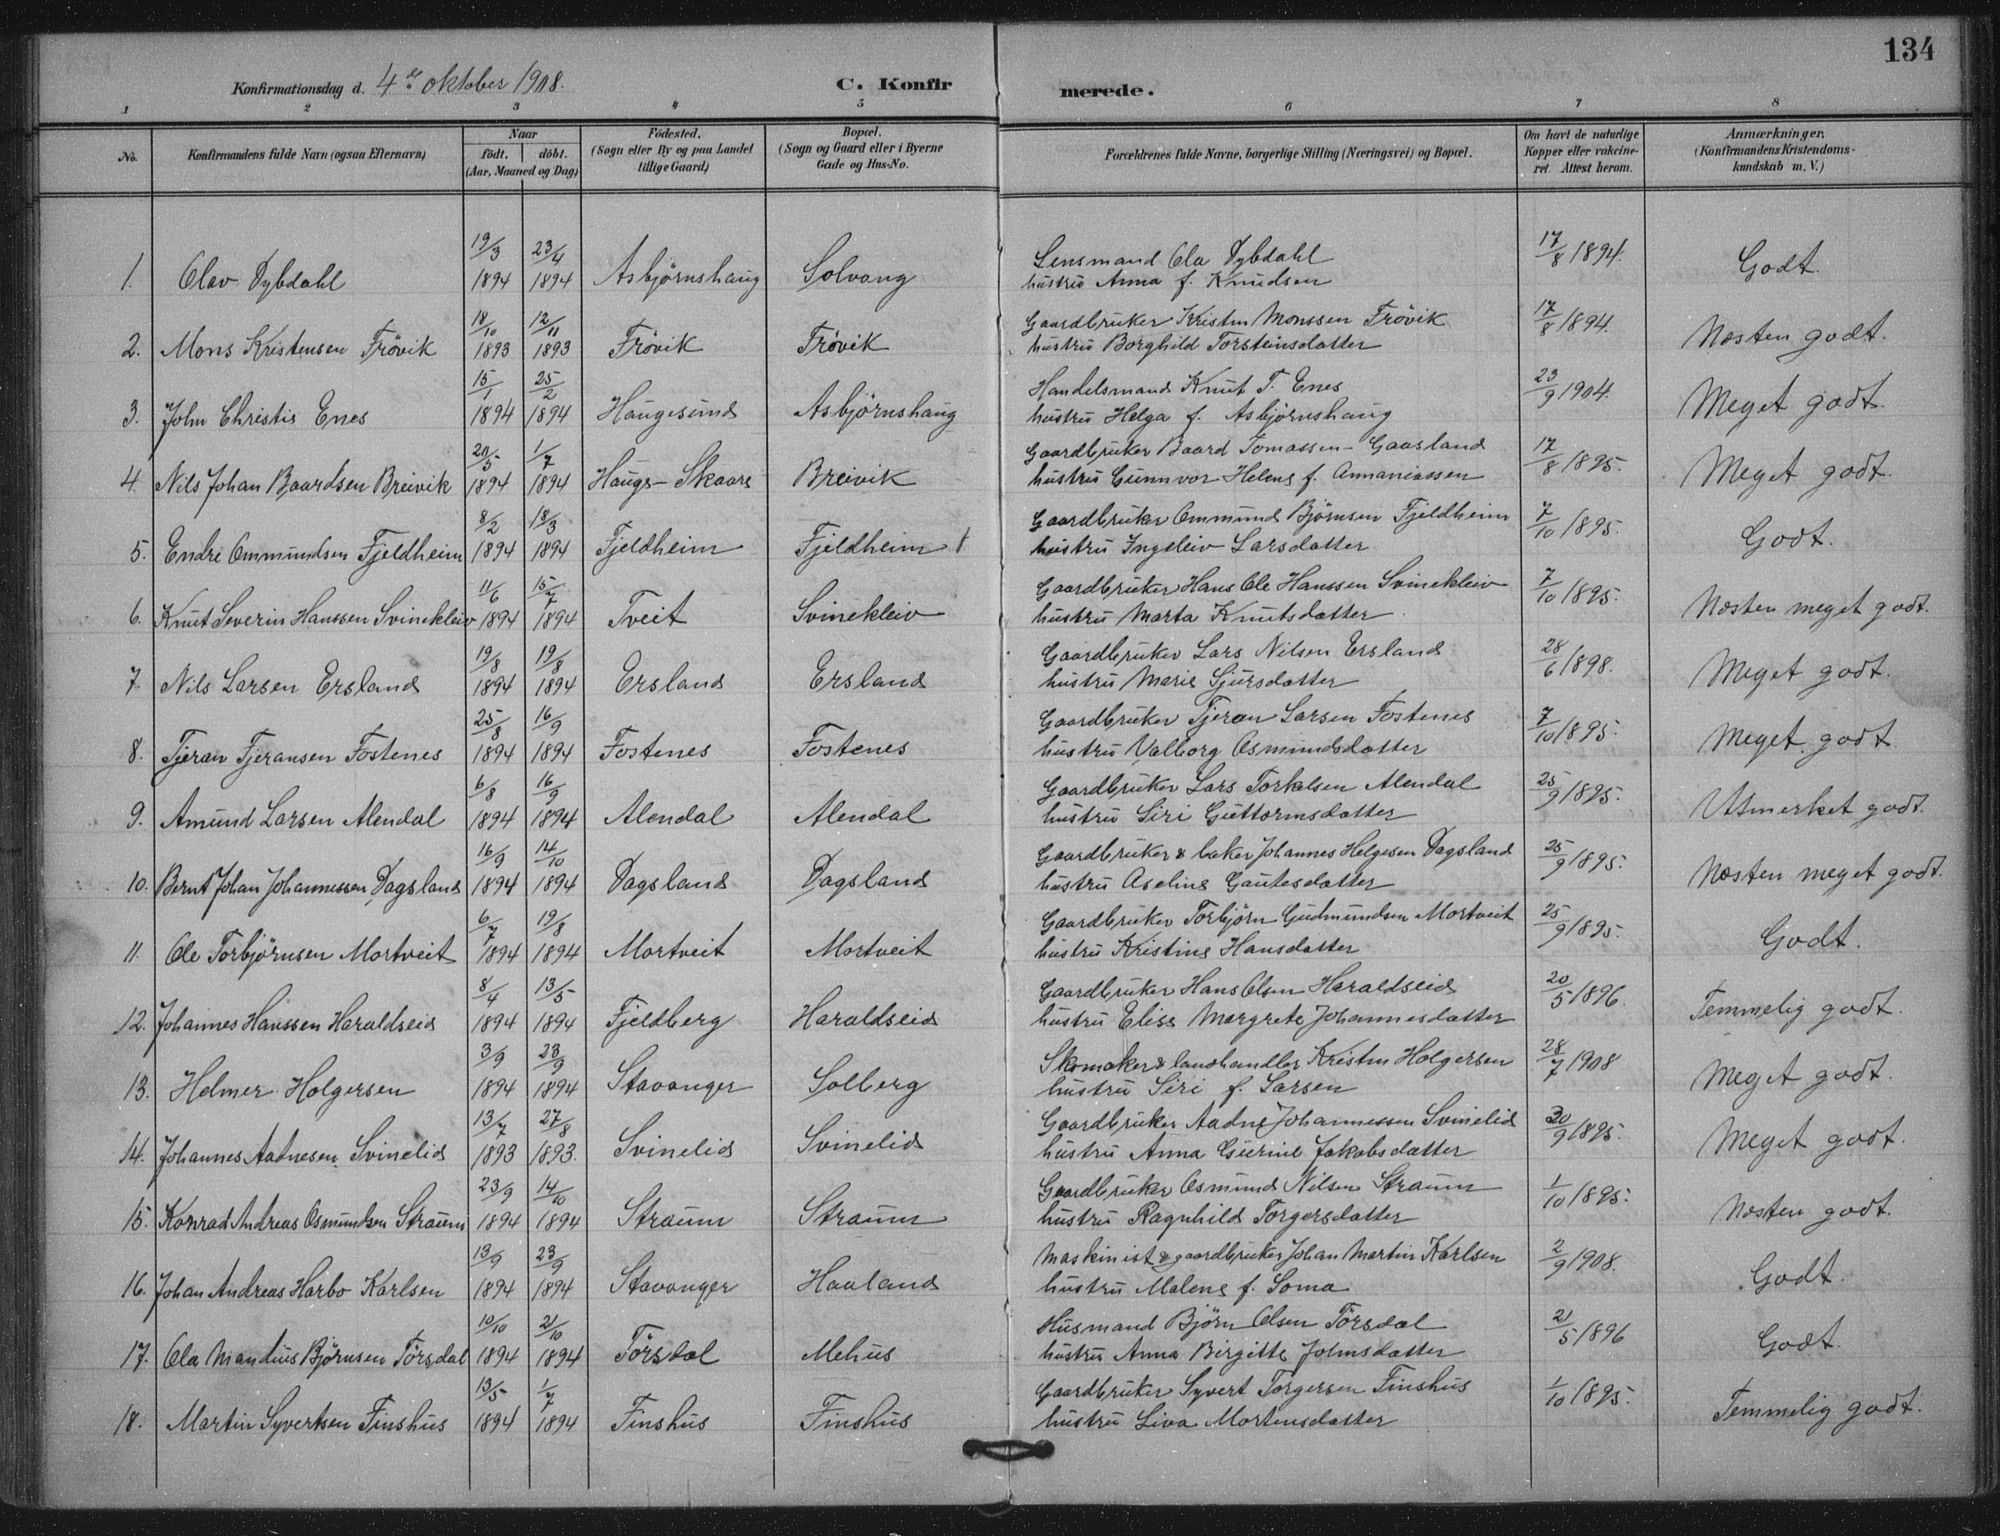 134
Konfirmationsdag d. 4de oktober 1908.
C. Konfirmerede.
1 2 3 4 5 6 7 8
No.
Konfirmandens fulde Navn (ogsaa Efternavn)
Naar
födt. döbt.
(Aar, Maaned og Dag)
Födested.
(Sogn eller By og paa Landet
tillige Gaard)
Bopæl.
(Sogn og Gaard eller i Byerne
Gade og Hus-No.
Forældrenes fulde Navne, borgerlige Stilling (Næringsvei) og Bopæl.
Om havt de naturlige
Kopper eller vakcine-
ret. Attest herom.
Anmærkninger,
(Konfirmandens Kristendoms-
kundskab m. V.)
1. Olav Dybdahl 19/3 1894 23/4 1894 Asbjørnshaug Solvang Lensmand Ola Dybdahl 17/8 1894. Godt.
hustru Anna f. Knudsen
2. Mons Kristensen Frövik 18/10 1893 12/11 1893 Frövik Frövik Gaardbruker Kristen Monssen Frövik 17/8 1894. Næsten godt.
hustru Borghild Torsteinsdatter
3. John Christie Enes 15/1 1894 25/2 1894 Haugesund Asbjørnshaug Handelsmand Knut T. Enes 23/9 1904. Meget godt.
hustru Helga f. Asbjörnshaug
4. Nils Johan Baardsen Breivik 20/5 1894 1/7 1894 Haugs-Skaare Breivik Gaardbruker Baard Tomassen-Gaasland 17/8 1895. Meget godt.
hustru Gunnvor Helene f. Annaniassen
5. Endre Ommundsen Fjeldheim 8/2 1894 18/3 1894 Fjeldheim Fjeldheim Gaardbruker Ommund Björnsen Fjeldheim 7/10 1895. Godt.
hustru Ingeleiv Larsdatter
6. Knut Severin Hanssen Svinekleiv 11/6 1894 15/7 1894 Tveit Svinekleiv Gaardbruker Hans Ole Hanssen Svinekleiv 7/10 1895. Næsten meget godt.
hustru Marta Knutsdatter
7. Nils Larsen Ersland 19/8 1894 19/8 1894 Ersland Ersland Gaardbruker Lars Nilsen Ersland 28/6 1898. Meget godt.
hustru Marie Sjursdatter
8. Tjeran Tjeransen Fostenes 25/8 1894 16/9 1894 Fostenes Fostenes Gaardbruker Tjeran Larsen Fostenes 7/10 1895. Meget godt.
hustru Valborg Osmundsdatter
9. Amund Larsen Alendal 6/8 1894 16/9 1894 Alendal Alendal Gaardbruker Lars Torkelsen Alendal 25/9 1895. Utmerket godt.
hustru Siri Guttormsdatter
10. Bernt Johan Johannessen Dagsland 16/9 1894 14/10 1894 Dagsland Dagsland Gaardbruker & baker Johannes Helgesen Dagsland 25/9 1895. Næsten meget godt.
hustru Aseline Gautesdatter
11. Ole Torbjørnsen Mortveit 6/7 1894 19/8 1894 Mortveit Mortveit Gaardbruker Torbjörn Gudmundsen Mortveit 25/9 1895. Godt.
hustru Kristine Hansdatter
12. Johannes Hanssen Haraldseid 8/4 1894 13/5 1894 Fjeldberg Haraldseid Gaardbruker Hans Olsen Haraldseid 20/5 1896. Temmelig godt.
hustru Elise Margrete Johannesdatter
13. Helmer Holgersen 3/9 1894 23/9 1894 Stavanger Solberg Skomaker & landhandler Kristen Holgersen 28/7 1908 Meget godt.
hustru Siri f. Larsen
14. Johannes Aadnesen Svinelid 13/7 1893 27/8 1893. Svinelid Svinelid Gaardbruker Aadne Johannessen Svinelid 30/9 1895. Meget godt.
hustru Anna Gurine Jakobsdatter
15. Konrad Andreas Osmundsen Straum 23/9 1894 14/10 1894 Straum Straum Gaardbruker Osmund Nilsen Straum 1/10 1895. Næsten godt.
hustru Ragnhild Torgersdatter
16. Johan Andreas Harbo Karlsen 13/9 1894 23/9 1894 Stavanger Haaland Maskinist & gaardbruker Johan Martin Karlsen 2/9 1908. Godt.
hustru Malene f. Soma
17. Ola Mandius Björnsen Törsdal 10/10 1894 21/10 1894 Törsdal Mehus Husmand Björn Olsen Törsdal 21/5 1896 Godt.
hustru Anna Birgitte Johnsdatter
18. Martin Syvertsen Finshus 13/5 1894 1/7 1894 Finshus Finshus Gaardbruker Syvert Torgersen Finshus 1/10 1895. Temmelig godt.
hustru Liva Mortensdatter